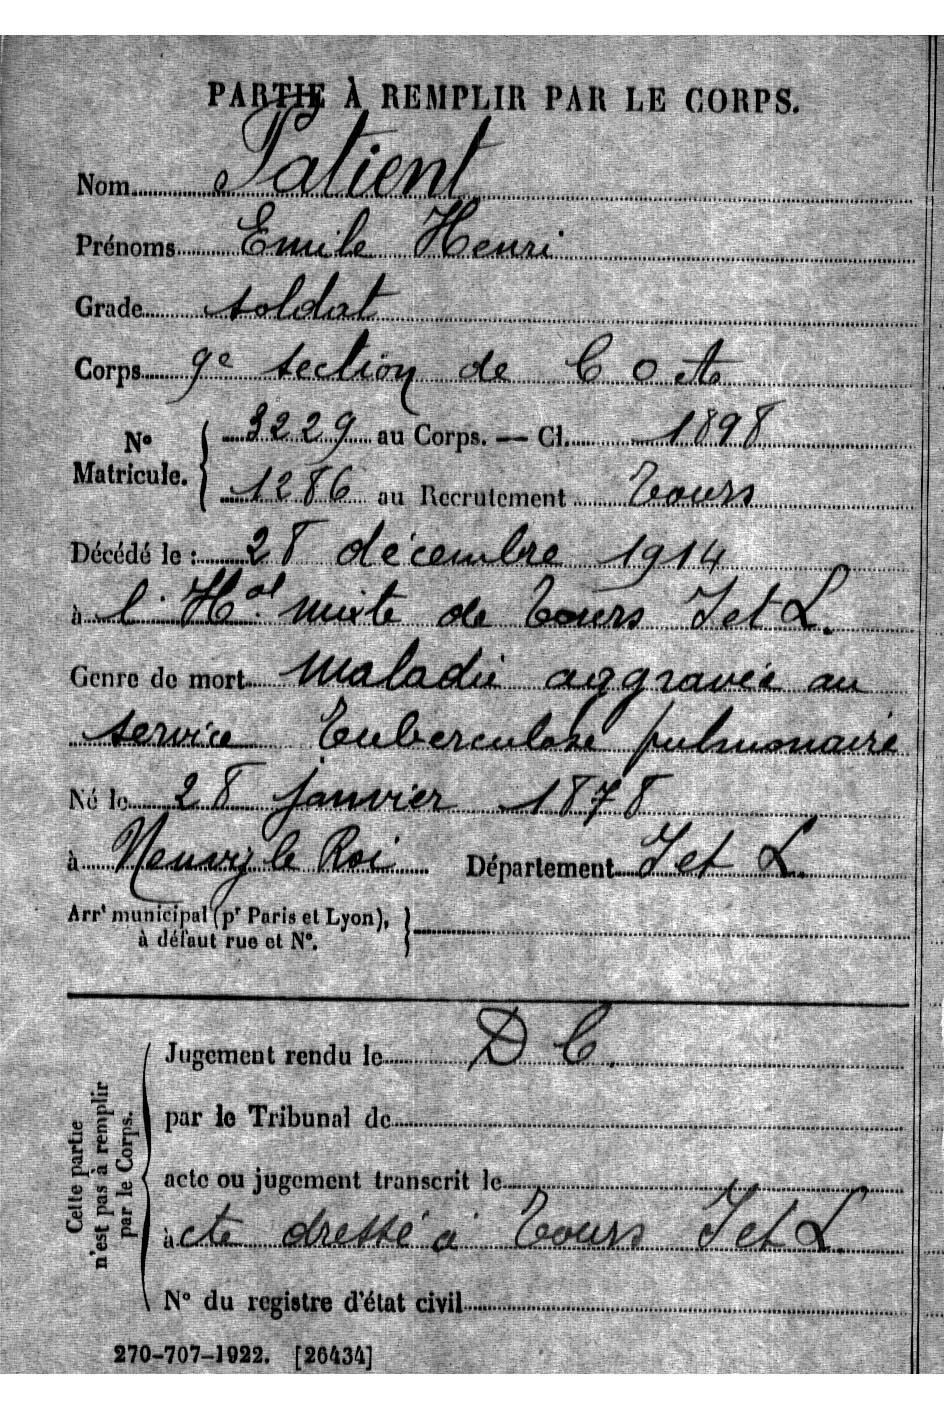 PARTIE À REMPLIR PAR LE CORPS.
Nom Patient
Prénoms Emile Henri
Grade soldat
Corps 9e section de C O A
N° Matricule. 3229 au Corps. — Cl. 1898
1286 au Recrutement Tours
Décédé le : 28 décembre 1914
à l'Hal mixte de Tours I et L.
Genre de mort maladie aggravée au
service Tuberculose pulmonaire
Né le 28 janvier 1878
à Neuvy le Roi Département I et L.
Arrt municipal (pr Paris et Lyon),
à défaut rue et N°.
Cette partie
n'est pas à remplir
par le Corps.
Jugement rendu le D C.
par le Tribunal de
acte ou jugement transcrit le
acte dressé à Tours I et L.
N° du registre d'état civil
270-707-1922. [26434]